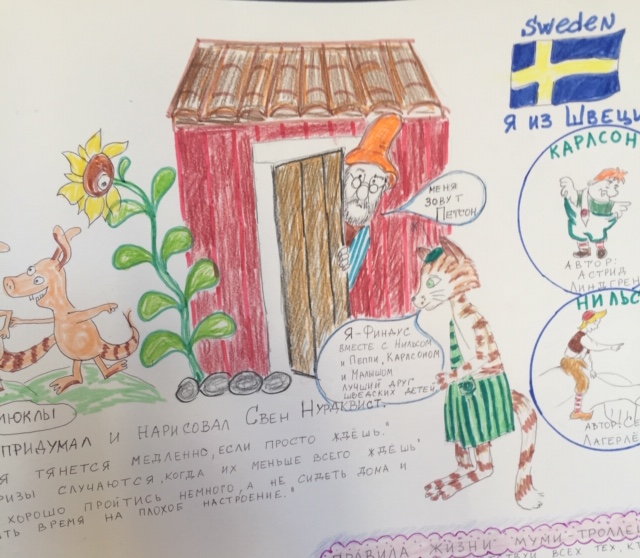 Sweden
Я ИЗ ШВЕЦИ
КАРЛСОН
АВТОР:
АСТРИД
ЛИНДГРЕН
НИЛЬС
АВТОР:СЕ
ЛАГЕРЛЁ
МЕНЯ
ЗОВУТ
ПЕТСОН
Я-ФИНДУС
ВМЕСТЕ С НИЛЬСОМ
И ПЕППИ, КАРЛСОНОМ
И МАЛЫШОМ
ЛУЧШИЙ ДРУГ
ШВЕДСКИХ ДЕТЕЙ
МЮКЛЫ
ПРИДУМАЛ И НАРИСОВАЛ СВЕН НУРДКВИСТ.
Я ТЯНЕТСЯ МЕДЛЕННО, ЕСЛИ ПРОСТО ЖДЁШЬ."
РИЗЫ СЛУЧАЮТСЯ, КОГДА ИХ МЕНЬШЕ ВСЕГО ЖДЁШЬ"
ХОРОШО ПРОЙТИСЬ НЕМНОГО, А НЕ СИДЕТЬ ДОМА И
ТЬ ВРЕМЯ НА ПЛОХОЕ НАСТРОЕНИЕ."
ПРАВИЛА ЖИЗНИ МУМИ-ТРОЛЛЕ
ВСЕХ ТЕХ